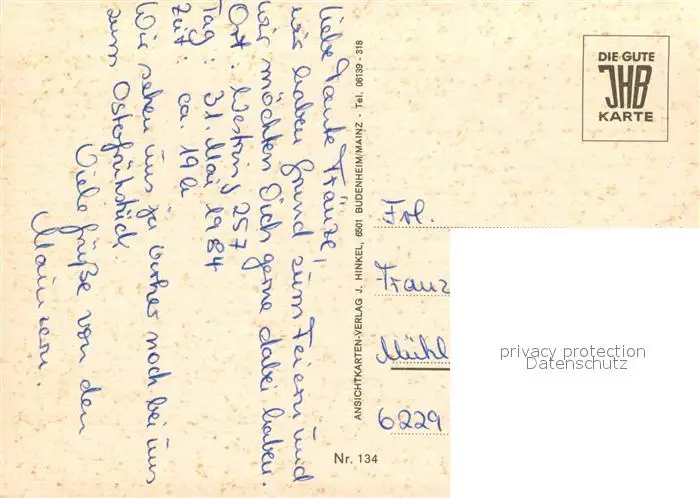 Liebe Tante Fränze,
wir haben Grund zum Feiern und
wir möchten Dich gerne dabei haben.
Ort: Westring 257
Tag: 31. Mai 1984
Zeit: ca. 19h
Wir sehen uns ja vorher noch bei uns
zum Osterfrühstück.
Viele Grüße von den
Mainzern.
ANSICHTKARTEN-VERLAG J. HINKEL, 6501 BUDENHEIM/MAINZ - Tel. 06139 - 318
DIE GUTE
JHB
KARTE
Frl.
Franz
Mühl
6229
Nr. 134
privacy protection
Datenschutz